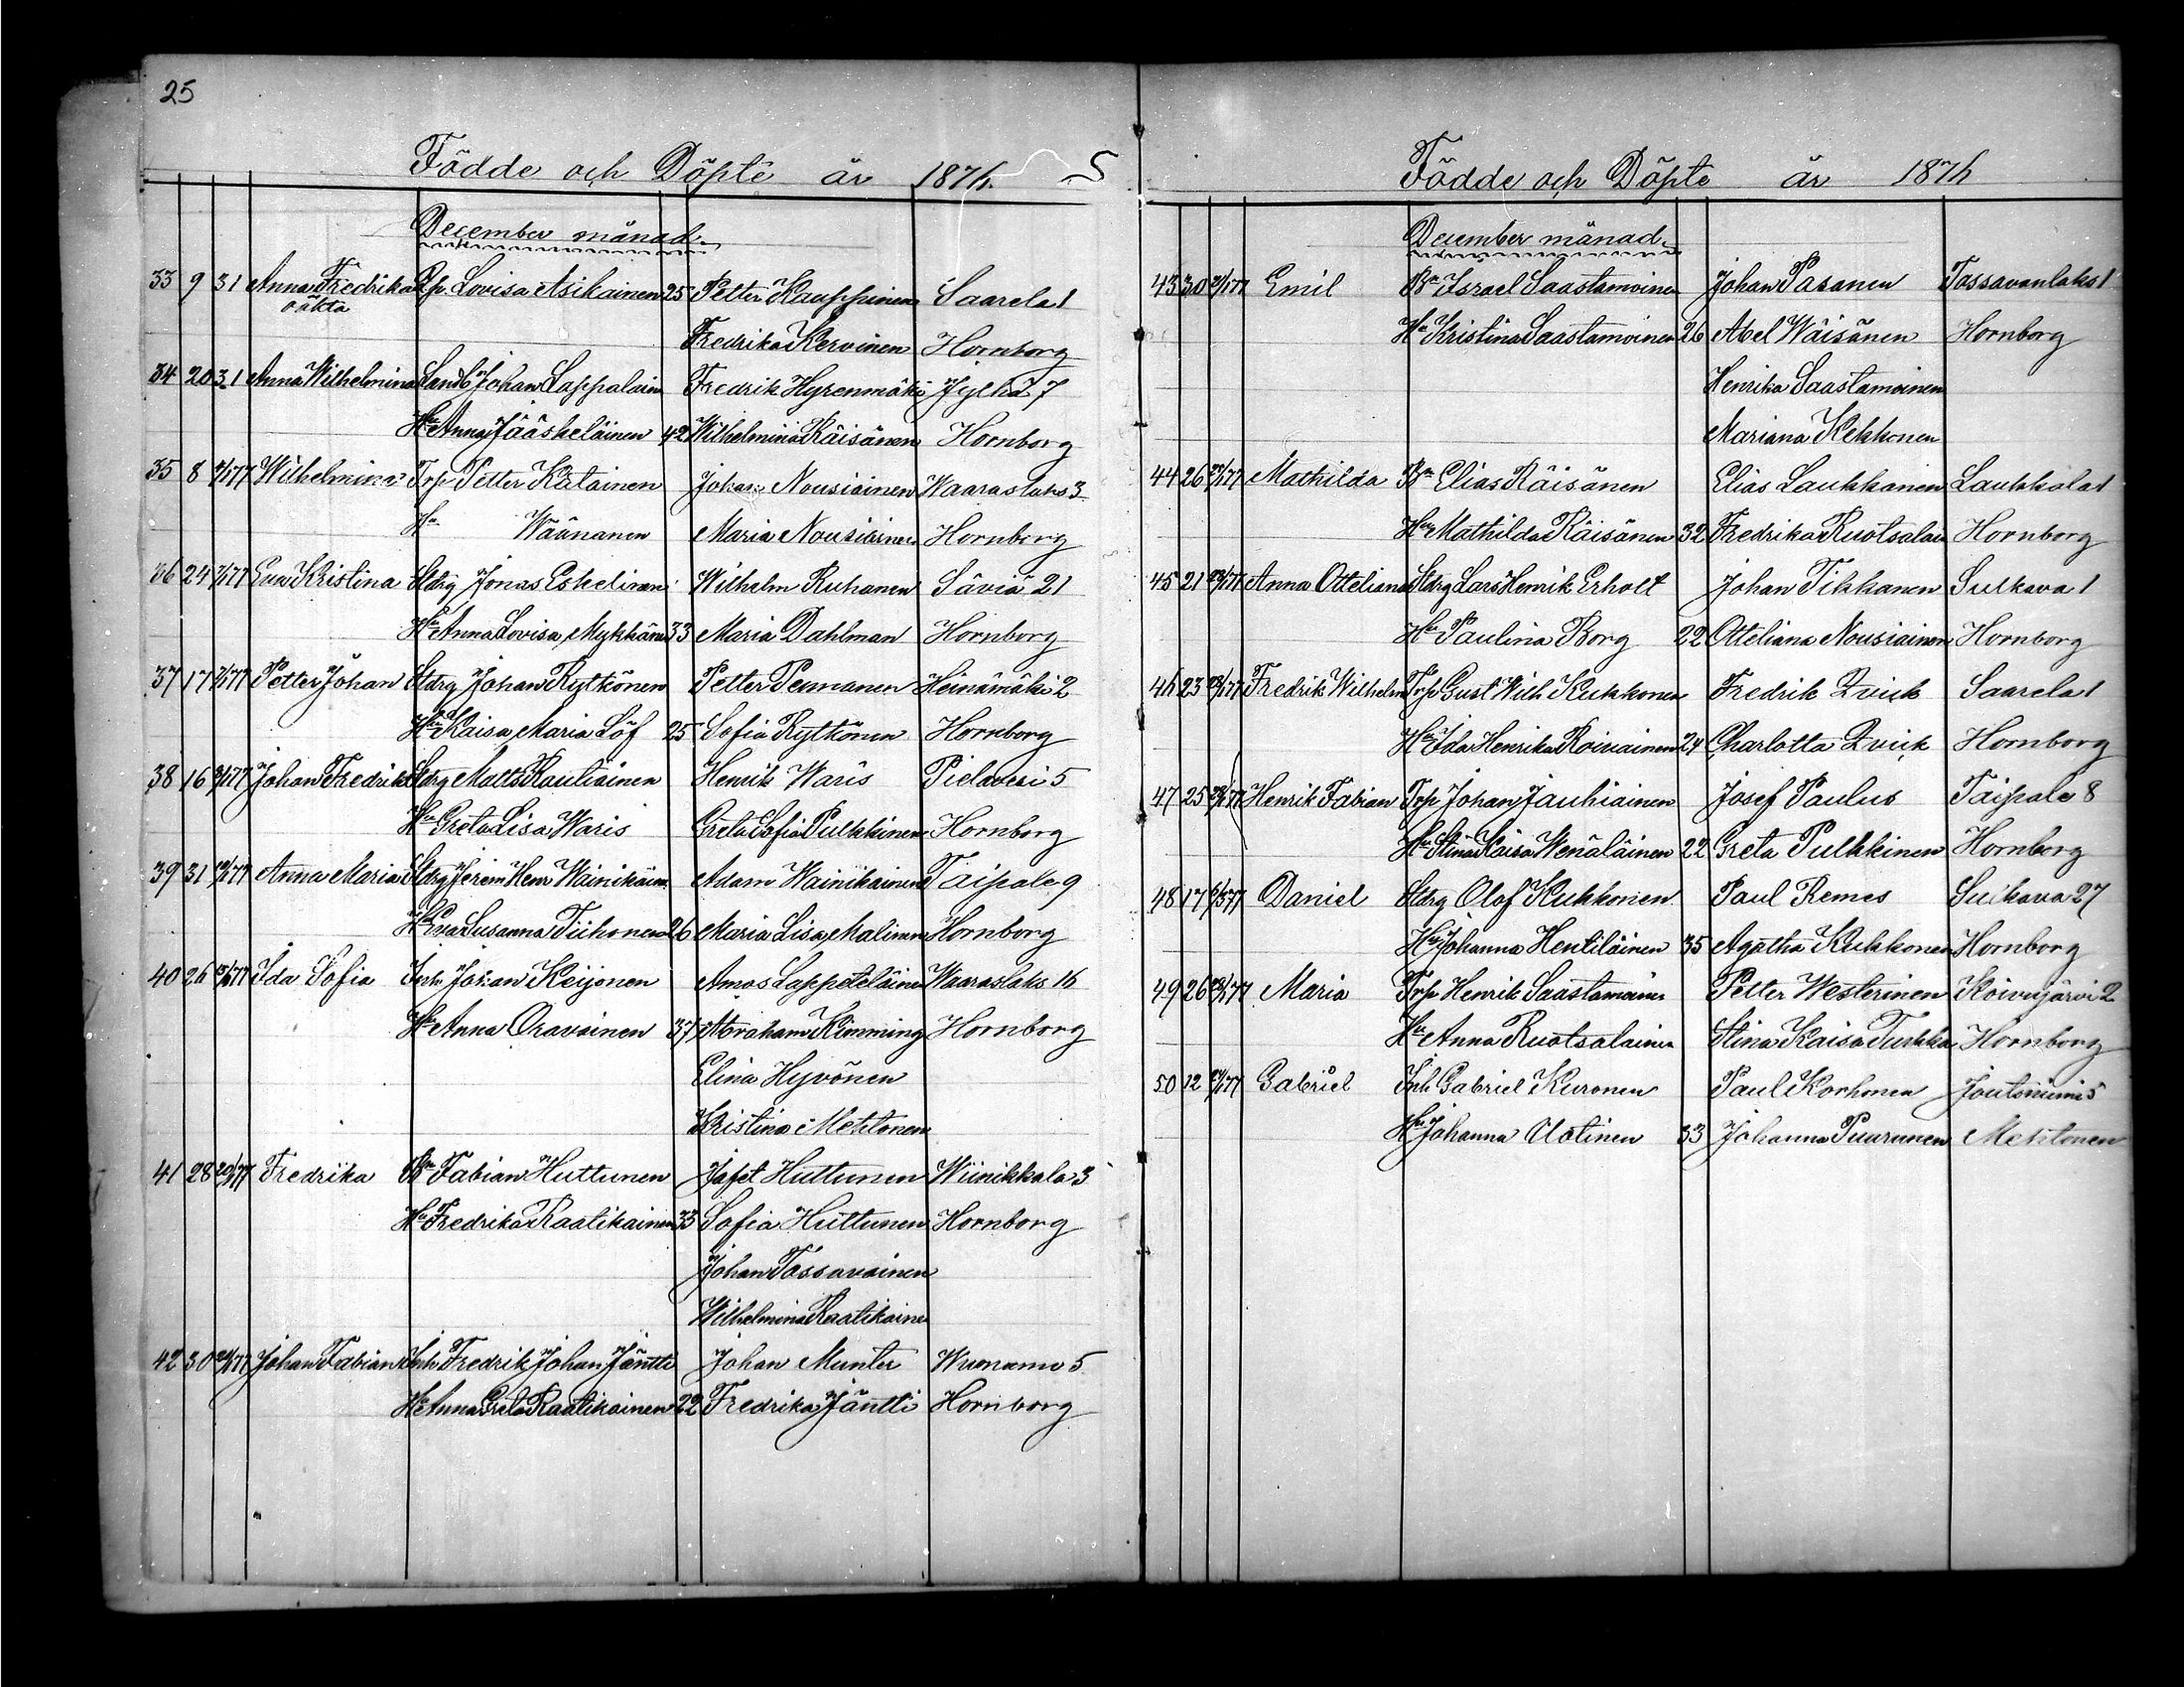 25
Födde och Döpte år 1876. 5
December månad.
33 9 31 Anna Fredrika Pp. Lovisa Asikainen 25 Petter Kauppinen Saarela 1
oäkta
Fredrika Kervinen Hornborg
34 20 31 Anna Wilhelmina Landb Johan Lappalain Fredrik Hyrenmäki Jylhä 7
Hu Anna Jääskeläinen 42 Wilhelmina Räisänen Hornborg
35 8 /1 77 Wilhelmina Trp Petter Katainen Johan Nousiainen Waaraslaks 3
Hu Wäänanen Maria Nousiainen Hornborg
36 24 7/1 77 Eva Kristina Stdrg Jonas Eskelinen Wilhelm Ruhanen Säviä 21
Hu Anna Lovisa Mykkänen 33 Maria Dahlman Hornborg
37 17 7/1 77 Petter Johan Stdrg Johan Rytkönen Petter Pennanen Heinämäki 2
Hu Kaisa Maria Löf 25 Sofia Rytkönen Hornborg
38 16 /1 77 Johan Fredrik Stdrg Matts Rautiainen Henrik Waris Pielavesi 5
Hu Greta Lisa Waris Greta Sofia Pulkkinen Hornborg
39 31 /1 77 Anna Maria Stdrg Jerem Henr Wainikäin Adam Wainikainen Taipale 9
Hu Eva Susanna Tiihonen 26 Maria Lisa Malinen Hornborg
40 26 /1 77 Ida Sofia Inh Johan Keijonen Amos Lappeteläinen Waaraslaks 16
Hu Anna Oravainen 37 Abraham Klimming Hornborg
Elina Hyvönen
Kristina Mehtonen
41 28 20/1 77 Fredrika Bn Fabian Huttunen Jafet Huttunen Wiinikkala 3
Hu Fredrika Raatikainen 33 Sofia Huttunen Hornborg
Johan Tossavainen
Wilhelmina Raatikaine
42 30 /1 77 Johan Fabian Inh Fredrik Johan Jäntti Johan Munter Wuonamo 5
Hu Anna Greta Raatikainen 22 Fredrika Jäntti Hornborg
Födde och Döpte år 1876
December månad.
43 30 21/1 77 Emil Bn Israel Saastamoinen Johan Pasanen Tossavanlaks 1
Hu Kristina Saastamoinen 26 Abel Wäisänen Hornborg
Henrika Saastamoinen
Mariana Kekkonen
44 26 /1 77 Mathilda Bn Elias Räisänen Elias Laukkanen Laukkala 1
Hu Mathilda Räisänen 32 Fredrika Ruotsalain Hornborg
45 21 /1 77 Anna Otteliana Stdrg Lars Henrik Erholt Johan Tikkanen Sulkava 1
Hu Paulina Borg 22 Otteliana Nousiainen Hornborg
46 23 /1 77 Fredrik Wilhelm Trp Gust Wilh Kukkonen Fredrik Zvick Saarela 1
Hu Ida Henrika Roivainen 24 Charlotta Zvick Hornborg
47 25 /1 77 Henrik Fabian Trp Johan Jauhiainen Josef Paulus Taipale 8
Hu Stina Kaisa Wenäläinen 22 Greta Pulkkinen Hornborg
48 17 /3 77 Daniel Stdrg Olof Kukkonen Paul Remes Sulkava 27
Hu Johanna Hentiläinen 35 Agatha Kukkonen Hornborg
49 26 /1 77 Maria Trp Henrik Saastamoinen Petter Westerinen Koivujärvi 2
Hu Anna Ruotsalainen Stina Kaisa Turkka Hornborg
50 12 /1 77 Gabriel Inh Gabriel Kuronen Paul Korhonen Joutoniemi 5
Hu Johanna Uotinen 33 Johanna Puurunen Mehtonen